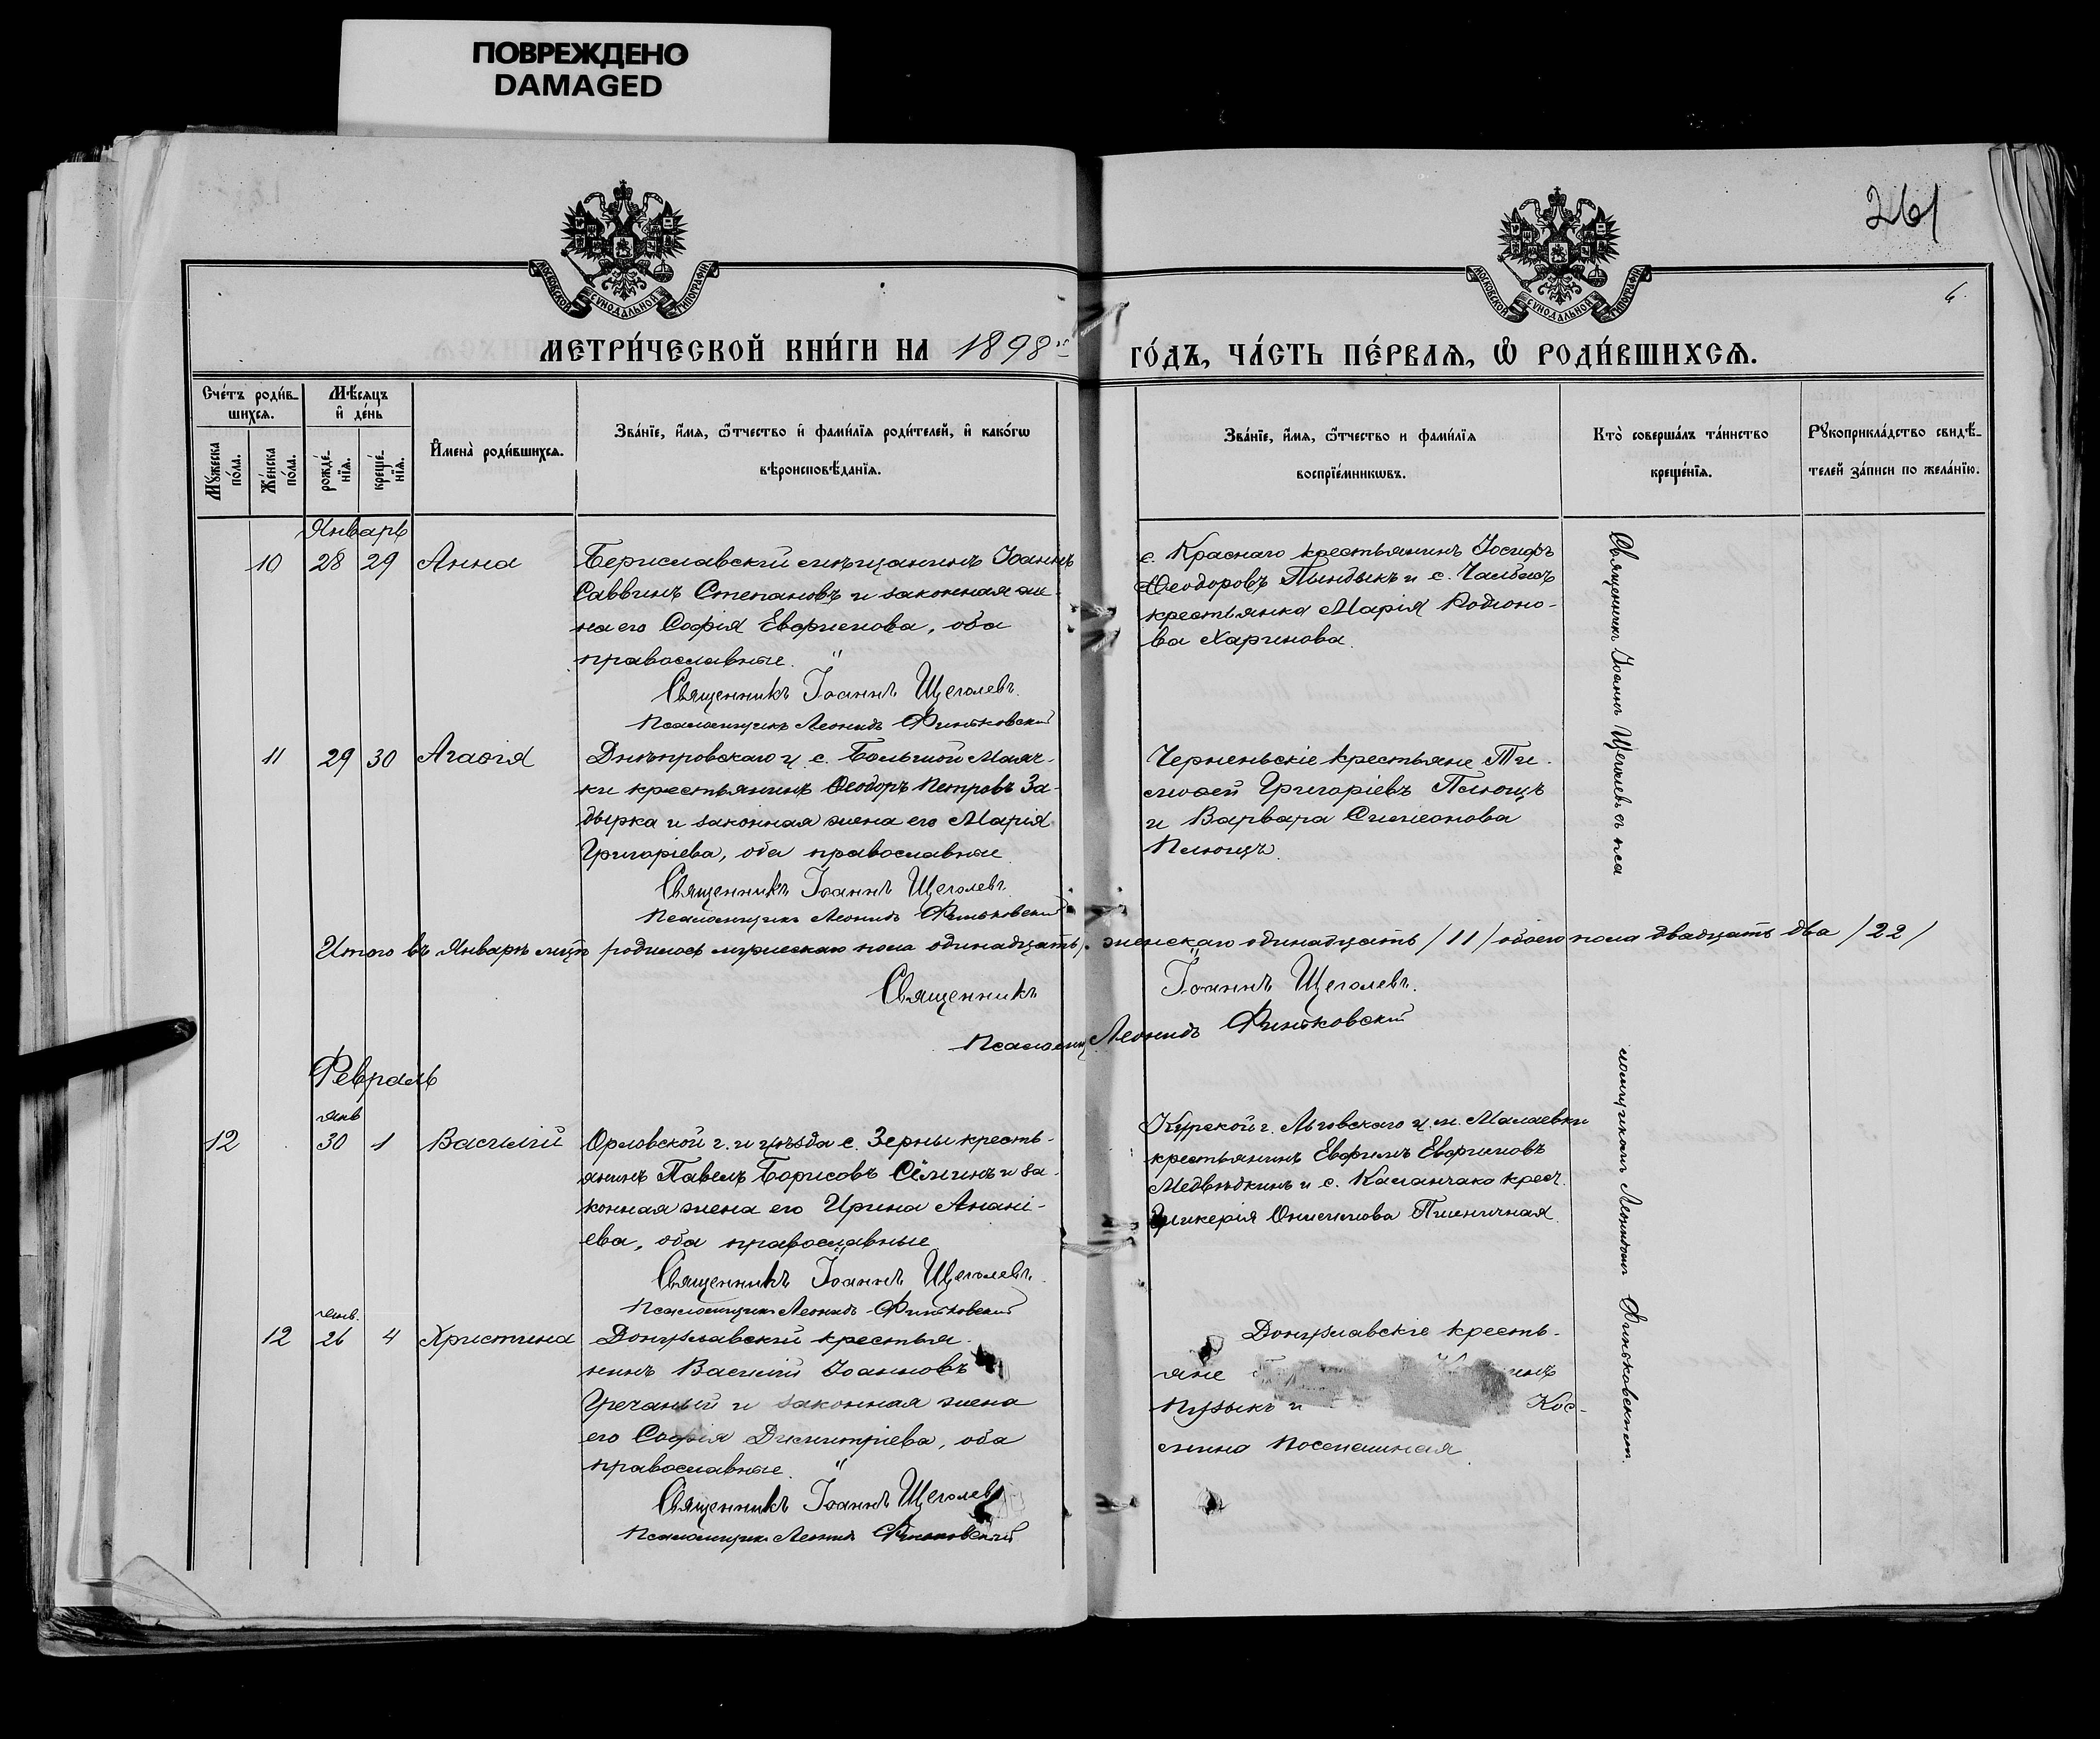 ПОВРЕЖДЕНО
DAMAGED
261
6.
МОСКОВСКОЙ СУНОДАЛЬНОЙ ТИПОГРАФІИ
МОСКОВСКОЙ СУНОДАЛЬНОЙ ТИПОГРАФІИ
МЕТРИ́ЧЕСКОЙ КНИ́ГИ НА 1898й ГО́ДЪ, ЧА́СТЬ ПЕ́РВАѦ, Ѡ҆ РОДИ́ВШИХСѦ.
Сче́тъ роди́в-
шихсѧ.
Мꙋ́жеска
по́ла.
Же́нска
по́ла.
Мѣ́сѧцъ
и҆ де́нь
рожде́-
нїѧ.
креще́-
нїѧ.
И҆мена̀ роди́вшихсѧ.
Зва́нїе, и҆́мѧ, ѻ҆́тчество и҆ фами́лїѧ роди́телей, и҆ како́гѡ
вѣроисповѣ́данїѧ.
Зва́нїе, и҆́мѧ, ѻ҆́тчество и фами́лїѧ
воспрїе́мникѡвъ.
Кто̀ соверша́лъ та́инство
креще́нїѧ.
Рꙋкоприкла́дство свидѣ́-
телей за́писи по жела́нїю.
Январь
10 28 29 Анна
Бериславскій мѣщанинъ Іоаннъ
Саввинъ Степановъ и законная же-
на его Софія Евфимова, оба
православные.
Священникъ Іоаннъ Щеголевъ.
Псаломщикъ Леонидъ Финьковскій
с. Краснаго крестьянинъ Іосифъ
Ѳеодоровъ Пындыкъ и с. Чалбасъ
крестьянка Марія Родіоно-
ва Харинова.
11 29 30 Агаѳія
Днѣпровскаго у. с. Большой Маяч-
ки крестьянинъ Ѳеодоръ Петровъ За-
дырка и законная жена его Марія
Григоріева, оба православные
Священникъ Іоаннъ Щеголевъ.
Псаломщикъ Леонидъ Финьковскій
Черненьскіе крестьяне Ти-
моѳей Григоріевъ Плющъ
и Варвара Симеонова
Плющъ.
Итого въ Январѣ м-цѣ родилось мужескаго пола одинадцать, женскаго одинадцать /11/ обоего пола двадцать два /22/
Священникъ Іоаннъ Щеголевъ.
Псаломщ. Леонидъ Финьковскій
Февраль
12 янв 30 1 Василій
Орловской г. и уѣзда с. Зерны кресть-
янинъ Павелъ Борисовъ Сёминъ и за-
конная жена его Ирина Анані-
ева, оба православные
Священникъ Іоаннъ Щеголевъ.
Псаломщикъ Леонидъ Финьковскій
Курской г. Льговскаго у. м. Малаевки
крестьянинъ Евфимъ Евфимовъ
Медвѣдкинъ и с. Каланчака крест.
Гликерія Онисимова Пшеничная.
12 янв. 26 4 Христина
Донузлавскій крестья-
нинъ Василій Іоанновъ
Гречаный и законная жена
его Софія Димитріева, оба
православные.
Священникъ Іоаннъ Щеголевъ
Псаломщикъ Леонидъ Финьковскій
Донузлавскіе кресть-
яне инъ
Пузыкъ и Кос-
мина Поспешная
Священникъ Іоаннъ Щеголевъ съ пса
ломщикомъ Леонидомъ Финьковскимъ.